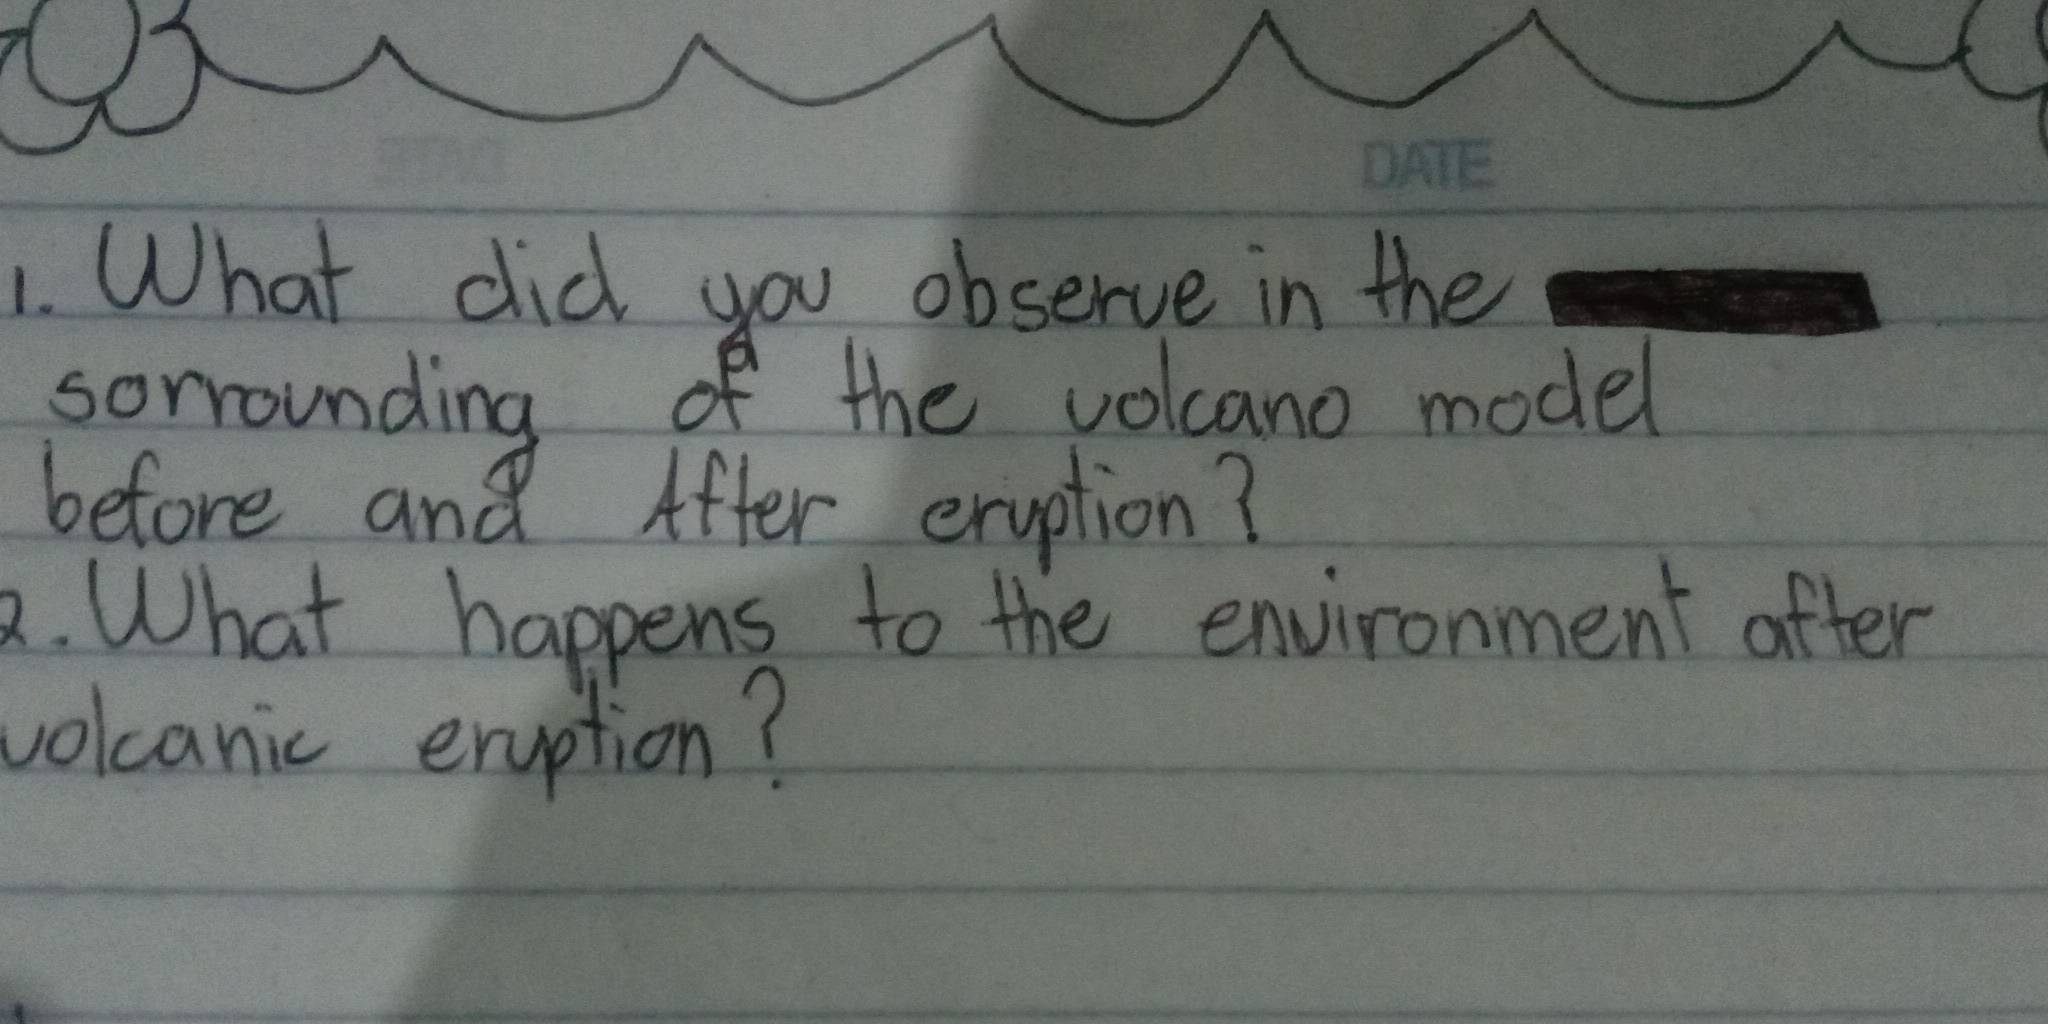 DATE
1. What did you observe in the
sorrounding of the volcano model
before and After eruption?
2. What happens to the environment after
volcanic eruption?